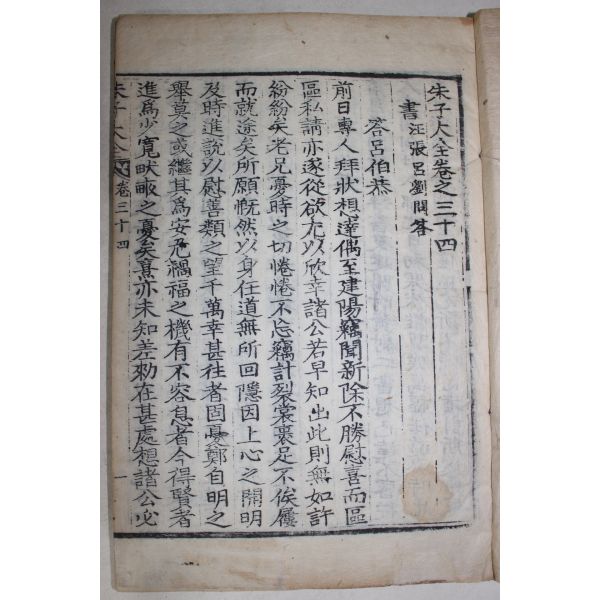 朱子大全卷之三十四
書 汪張呂劉問答
答呂伯恭
前日專人拜狀想達偶至建陽竊聞新除不勝慰喜而區
區私請亦遂從欲尤以欣幸諸公若早知出此則無如許
紛紛矣老兄憂時之切惓惓不忘竊計裂裳裹足不俟屨
而就途矣所願慨然以身任道無所回隱因上心之開明
及時進說以慰善類之望千萬幸甚往者固憂鄭自明之
舉莫之或繼其爲安危禍福之機有不容息者今得賢者
進爲少寬畎畝之憂矣熹亦未知差勑在甚處想諸公必
朱子大全 卷三十四 一